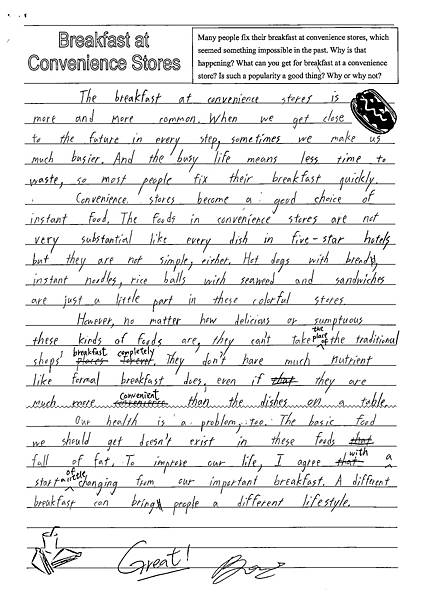 Breakfast at
Convenience Stores
Many people fix their breakfast at convenience stores, which
seemed something impossible in the past. Why is that
happening? What can you get for breakfast at a convenience
store? Is such a popularity a good thing? Why or why not?
The breakfast at convenience stores is
more and more common. When we get close
to the future in every step, sometimes we make us
much busier. And the busy life means less time to
waste, so most people fix their breakfast quickly.
Convenience stores become a good choice of
instant food. The foods in convenience stores are not
very substantial like every dish in five-star hotels
but they are not simple, either. Hot dogs with bread,
instant noodles, rice balls with seaweed and sandwiches
are just a little part in these colorful stores.
However, no matter how delicious or sumptuous
these kinds of foods are, they can't take the place of the traditional
shops' breakfast completely. They don't have much nutrient
like formal breakfast does, even if that they are
much more convenient than the dishes on a table.
Our health is a problem, too. The basic food
we should get doesn't exist in these foods that
full of fat. To improve our life, I agree with a
start of changing from our important breakfast. A different
breakfast can bring people a different lifestyle.
Great!